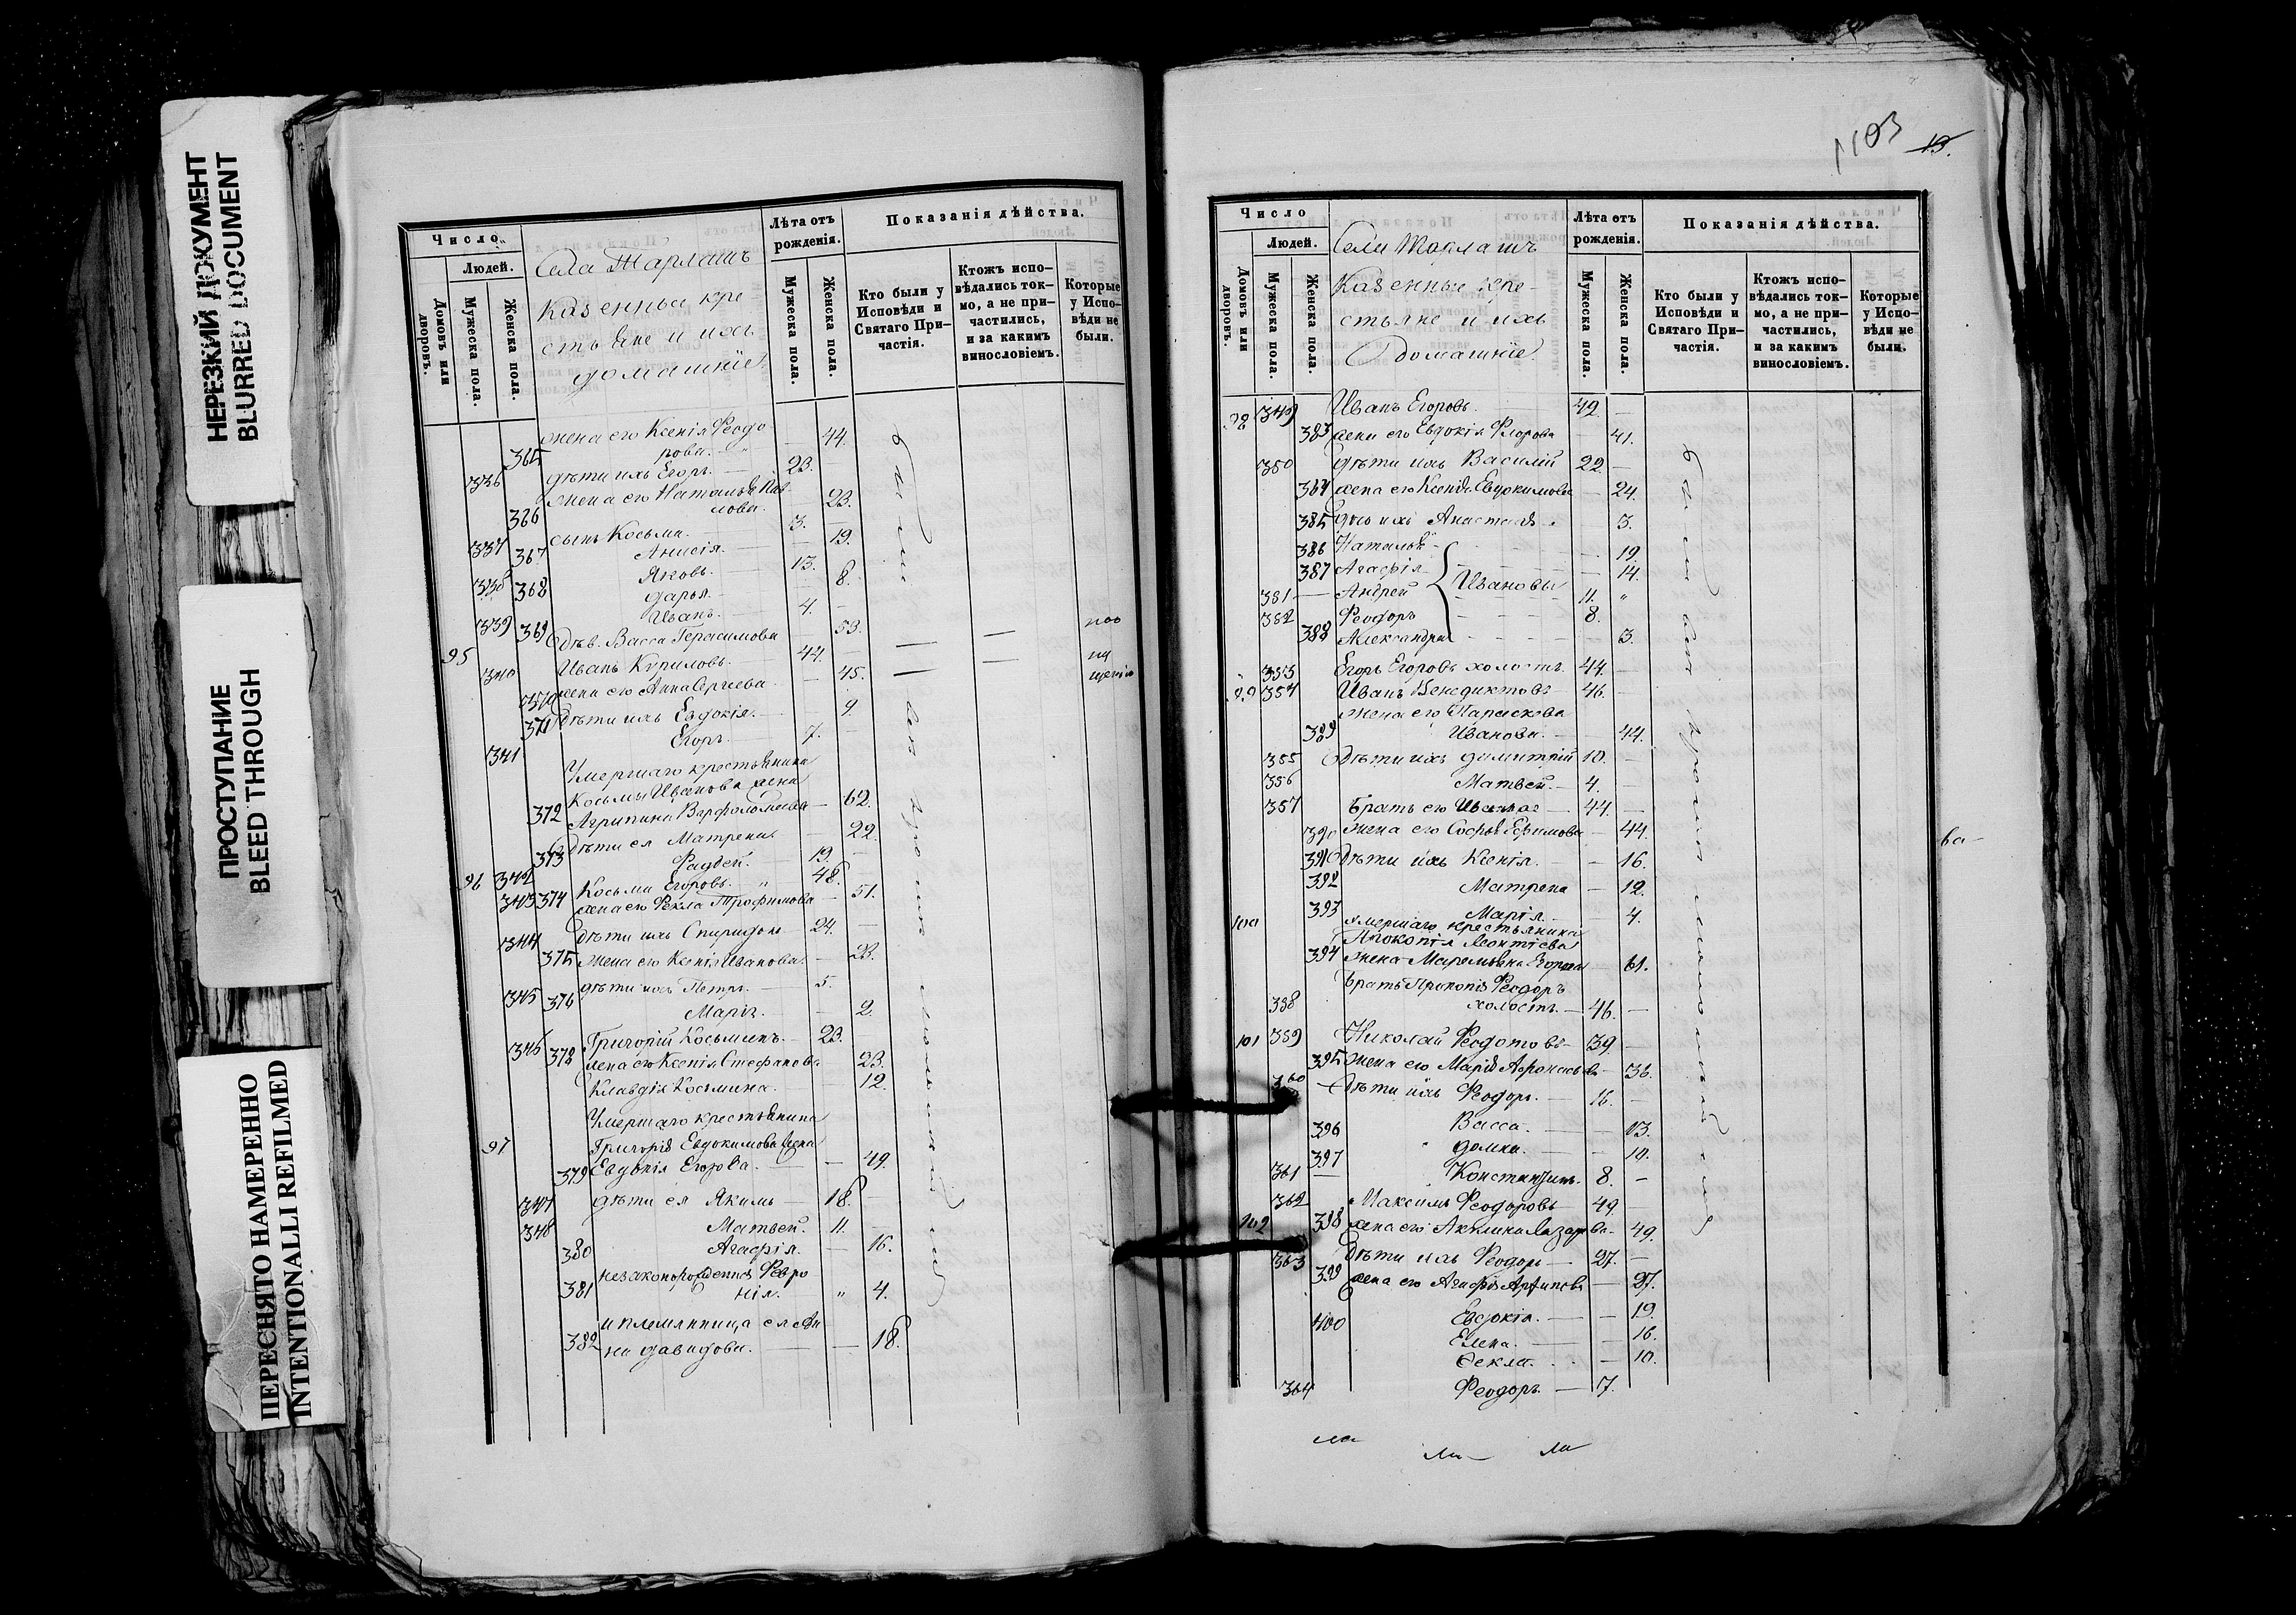 НЕРЕЗКИЙ ДОКУМЕНТ
BLURRED DOCUMENT
ПРОСТУПАНИЕ
BLEED THROUGH
ПЕРЕСНЯТО НАМЕРЕННО
INTENTIONALLI REFILMED
Число
Людей.
Домовъ или дворовъ.
Мужеска пола.
Женска пола.
Села Тарлашъ
Казенные кре-
стьяне и ихъ
домашніе.
Лѣта отъ рожденія.
Мужеска пола.
Женска пола.
Показанія дѣйства.
Кто были у Исповѣди и Святаго Причастія.
Ктожъ исповѣдались токмо, а не причастились, и за какимъ винословіемъ.
Которые у Исповѣди не были.
365 жена его Ксенія Феодо
рова. — 44.
336 дѣти ихъ Егоръ. — 23.
366 жена его Наталья Пав
лова. 23.
337 сынъ Косьма. 3.
367 Анисія. — 19.
338 Яковъ. — 13.
368 Дарья. — 8.
339 Иванъ. — 4.
369 Дѣв. Васса Герасимова 53.
95 340 Иванъ Куриловъ. — 44.
370 жена его Анна Сергіева. — 45.
371 Дѣти ихъ Евдокія. — 9.
341 Егоръ. — 7.
Умершаго крестьянина
Косьмы Иванова жена
372 Агрипина Варфоломеева — 62.
373 Дѣти ея Матрена 22.
342 Фаддей. — 19.
96 343 Косьма Егоровъ. 48.
374 жена его Фекла Трофимова — 51.
344 Дѣти ихъ Спиридонъ 24.
375 жена его Ксенія Иванова. — 23.
345 дѣти ихъ Петръ. — 5.
376 Марія. — 2.
346 Григорій Косьминъ. — 23.
378 жена его Ксенія Стефанова 23.
Клавдія Косьмина. 12.
97 Умершаго крестьянина
Григорія Евдокимова жена
379 Евдокія Егорова. — 49.
347 дѣти ея Якимъ — 18.
348 Матвей. 11.
380 Агафія. — 16.
незаконорожденная Февро
381 нія. — 4.
и племянница ея Ан
382 на Давидова. — 18.
1103
19.
Число
Людей.
Домовъ или дворовъ.
Мужеска пола.
Женска пола.
Села Тарлашъ
Казенные кре-
стьяне и ихъ
домашніе.
Лѣта отъ рожденія.
Мужеска пола.
Женска пола.
Показанія дѣйства.
Кто были у Исповѣди и Святаго Причастія.
Ктожъ исповѣдались токмо, а не причастились, и за какимъ винословіемъ.
Которые у Исповѣди не были.
98 349 Иванъ Егоровъ. 42. —
383 жена его Евдокія Флорова — 41.
350 дѣти ихъ Василій 22. —
384 жена его Ксенія Евдокимова — 24.
385 дочь ихъ Анастасія 3.
386 Наталья — 19.
387 Агафія — 14.
381 — Андрей 11.
Ивановы
382 Феодоръ 8.
388 Александра 3.
353 Егоръ Егоровъ холостъ. 44. —
99 354 Иванъ Венедиктовъ 46. —
жена его Параскева
389 Иванова. — 44.
355 Дѣти ихъ Димитрій 10. —
356 Матвей. — 4.
357 Братъ его Иванъ — 44. —
390 жена его Софья Ефимова — 44.
391 Дѣти ихъ Ксенія. — 16.
392 Матрена — 12.
393 Марія. — 4.
100 умершаго крестьянина
Прокопія Леонтіева
394 жена Маремьяна Егорова — 61.
Братъ Прокопія Феодоръ
358 холостъ. — 46. —
101 359 Николай Федотовъ — 39. —
395 жена его Марія Афонасьева — 36.
360 Дѣти ихъ Феодоръ. — 16. —
396 Васса. — 13.
397 Домна. — 10.
361 Константинъ. 8. —
362 Максимъ Феодоровъ — 49.
102 398 жена его Акилина Лазарева — 49.
363 Дѣти ихъ Феодоръ — 27. —
399 жена его Агафія Архипова — 27.
400 Евдокія. — 19.
Елена. — 16.
Фекла. — 10.
364 Феодоръ — 7.
ва-